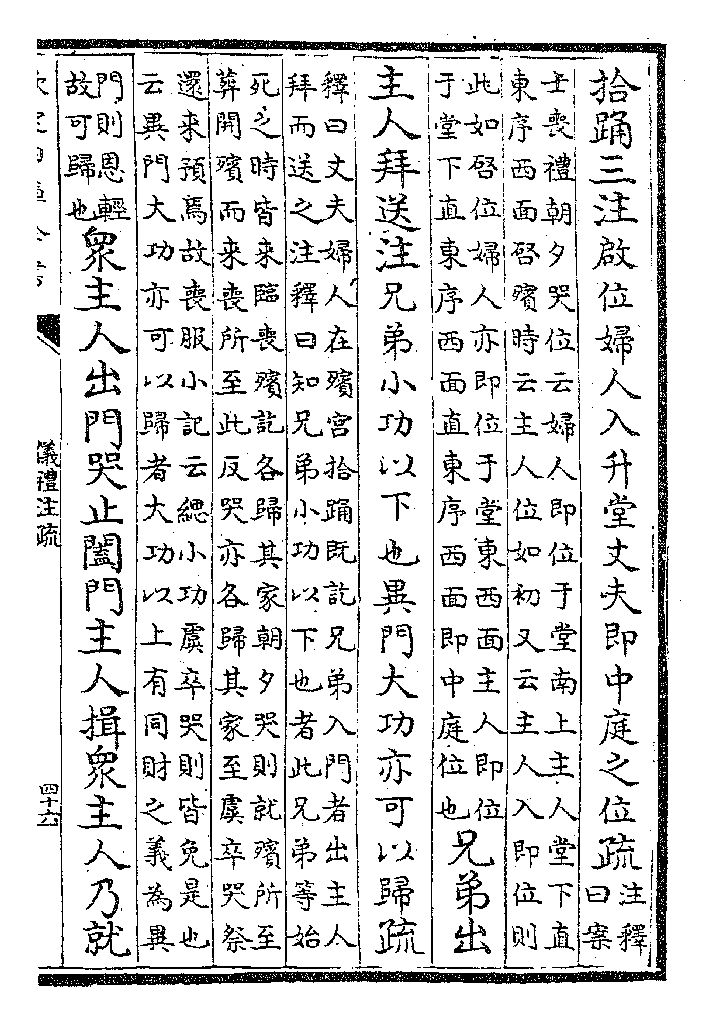 拾踊三注啟位婦人入升堂丈夫即中庭之位疏注釋
曰案
士喪禮朝夕哭位云婦人即位于堂南上主人堂下直
東序西面啓殯時云主人位如初又云主人入即位則
此如啓位婦人亦即位于堂東西面主人即位
于堂下直東序西面直東序西面即中庭位也兄弟出
主人拜送注兄弟小功以下也異門大功亦可以歸疏
釋曰丈夫婦人在殯宮拾踊既訖兄弟入門者出主人
拜而送之注釋曰知兄弟小功以下也者此兄弟等始
死之時皆來臨喪殯訖各歸其家朝夕哭則就殯所至
葬開殯而来喪所至此反哭亦各歸其家至虞卒哭祭
還来預焉故喪服小記云緦小功虞卒哭則皆免是也
云異門大功亦可以歸者大功以上有同財之義為異
門則恩輕
故可歸也眾主人出門哭止闔門主人揖眾主人乃就
儀禮注疏
四十六